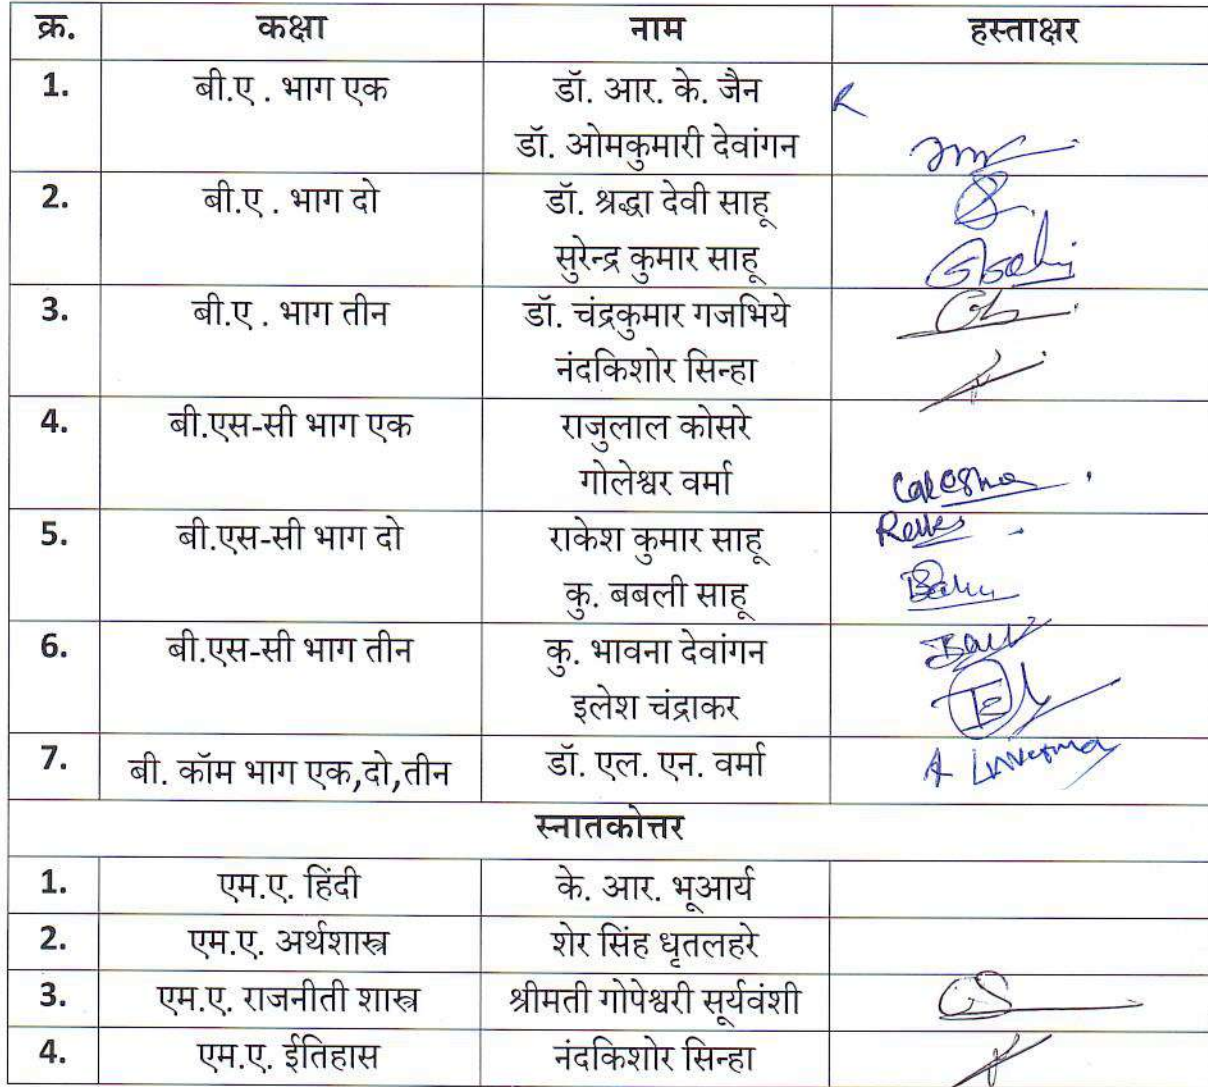 क्र. कक्षा नाम हस्ताक्षर
1. बी.ए . भाग एक डॉ. आर. के. जैन
डॉ. ओमकुमारी देवांगन
2. बी.ए . भाग दो डॉ. श्रद्धा देवी साहू
सुरेन्द्र कुमार साहू
3. बी.ए . भाग तीन डॉ. चंद्रकुमार गजभिये
नंदकिशोर सिन्हा
4. बी.एस-सी भाग एक राजुलाल कोसरे
गोलेश्वर वर्मा
5. बी.एस-सी भाग दो राकेश कुमार साहू
कु. बबली साहू
6. बी.एस-सी भाग तीन कु. भावना देवांगन
इलेश चंद्राकर
7. बी. कॉम भाग एक,दो,तीन डॉ. एल. एन. वर्मा
स्नातकोत्तर
1. एम.ए. हिंदी के. आर. भूआर्य
2. एम.ए. अर्थशास्त्र शेर सिंह धृतलहरे
3. एम.ए. राजनीती शास्त्र श्रीमती गोपेश्वरी सूर्यवंशी
4. एम.ए. ईतिहास नंदकिशोर सिन्हा